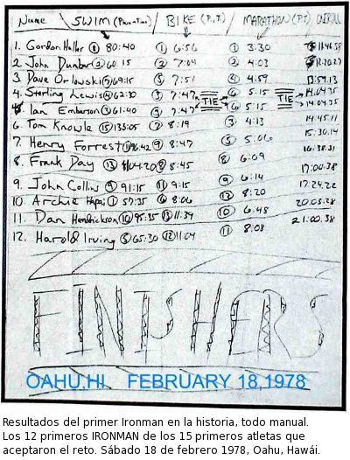 Name SWIM (Place-Time) BIKE (P,T) MARATHON (P,T) OVERALL
1. Gordon Haller ⑧ 80:40 ① 6:56 ① 3:30 11:46:58
2. John Dunbar ② 60:15 ② 7:04 ② 4:03
3. Dave Orlowski 69:15 ⑤ 7:51 ④ 4:59 13:59.13
4. Sterling Lewis ④ 62:30 ③ 7:47 TIE 5:15 TIE 14.04.35
Ian Emberson ③ 61:40 7:47 5:15 14.04.35
6. Tom Knowle ⑮ 8:19 ③ 4:13 14.45.11
7. Henry Forrest 8:47 5:06 15.30.14
8. Frank Day 8:45 6:09 16.38.31
9. John Collins 91:15 9:15 6:14 17:00.38
10. Archie Hapai ① 57:35 ⑥ 8:06 8:20 17.24.22
11. Dan Hendrickson 95:35 11:39 ⑩ 6:48 20.03.28
12. Harold Irving ⑤ 65:30 11:04 ⑪ 8:03 21:00.38
FINISHERS
OAHU,HI. FEBRUARY 18,1978
Resultados del primer Ironman en la historia, todo manual.
Los 12 primeros IRONMAN de los 15 primeros atletas que
aceptaron el reto. Sábado 18 de febrero 1978, Oahu, Hawái.